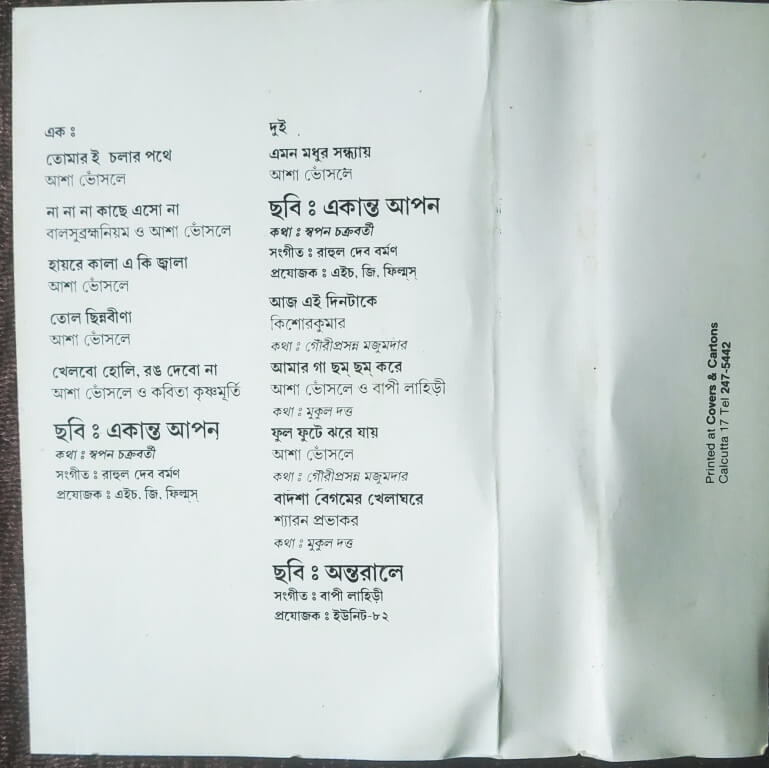 এক :
তোমার ই চলার পথে
আশা ভোঁসলে
না না না কাছে এসো না
বালসুব্রহ্মনিয়ম ও আশা ভোঁসলে
হায়রে কালা এ কি জ্বালা
আশা ভোঁসলে
তোল ছিন্নবীণা
আশা ভোঁসলে
খেলবো হোলি, রঙ দেবো না
আশা ভোঁসলে ও কবিতা কৃষ্ণমূর্তি
ছবি : একান্ত আপন
কথা : স্বপন চক্রবর্তী
সংগীত : রাহুল দেব বর্মণ
প্রযোজক : এইচ, জি, ফিল্মস্
দুই
এমন মধুর সন্ধ্যায়
আশা ভোঁসলে
ছবি : একান্ত আপন
কথা : স্বপন চক্রবর্তী
সংগীত : রাহুল দেব বর্মণ
প্রযোজক : এইচ, জি, ফিল্মস্
আজ এই দিনটাকে
কিশোরকুমার
কথা : গৌরীপ্রসন্ন মজুমদার
আমার গা ছম্ ছম্ করে
আশা ভোঁসলে ও বাপী লাহিড়ী
কথা : মুকুল দত্ত
ফুল ফুটে ঝরে যায়
আশা ভোঁসলে
কথা : গৌরীপ্রসন্ন মজুমদার
বাদশা বেগমের খেলাঘরে
শ্যারন প্রভাকর
কথা : মুকুল দত্ত
ছবি : অন্তরালে
সংগীত : বাপী লাহিড়ী
প্রযোজক : ইউনিট-৮২
Printed at Covers & Cartons
Calcutta 17 Tel 247-5442